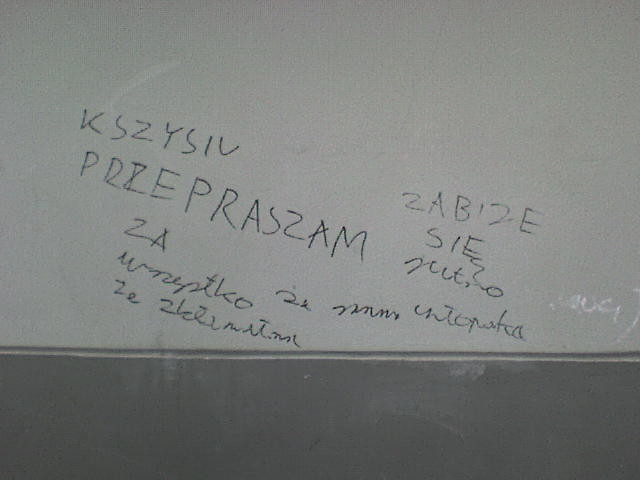 KSZYSIU
PRZEPRASZAM
ZA
wszystko że mam chłopaka
że skłamałam
ZABIZE
SIĘ
jutro